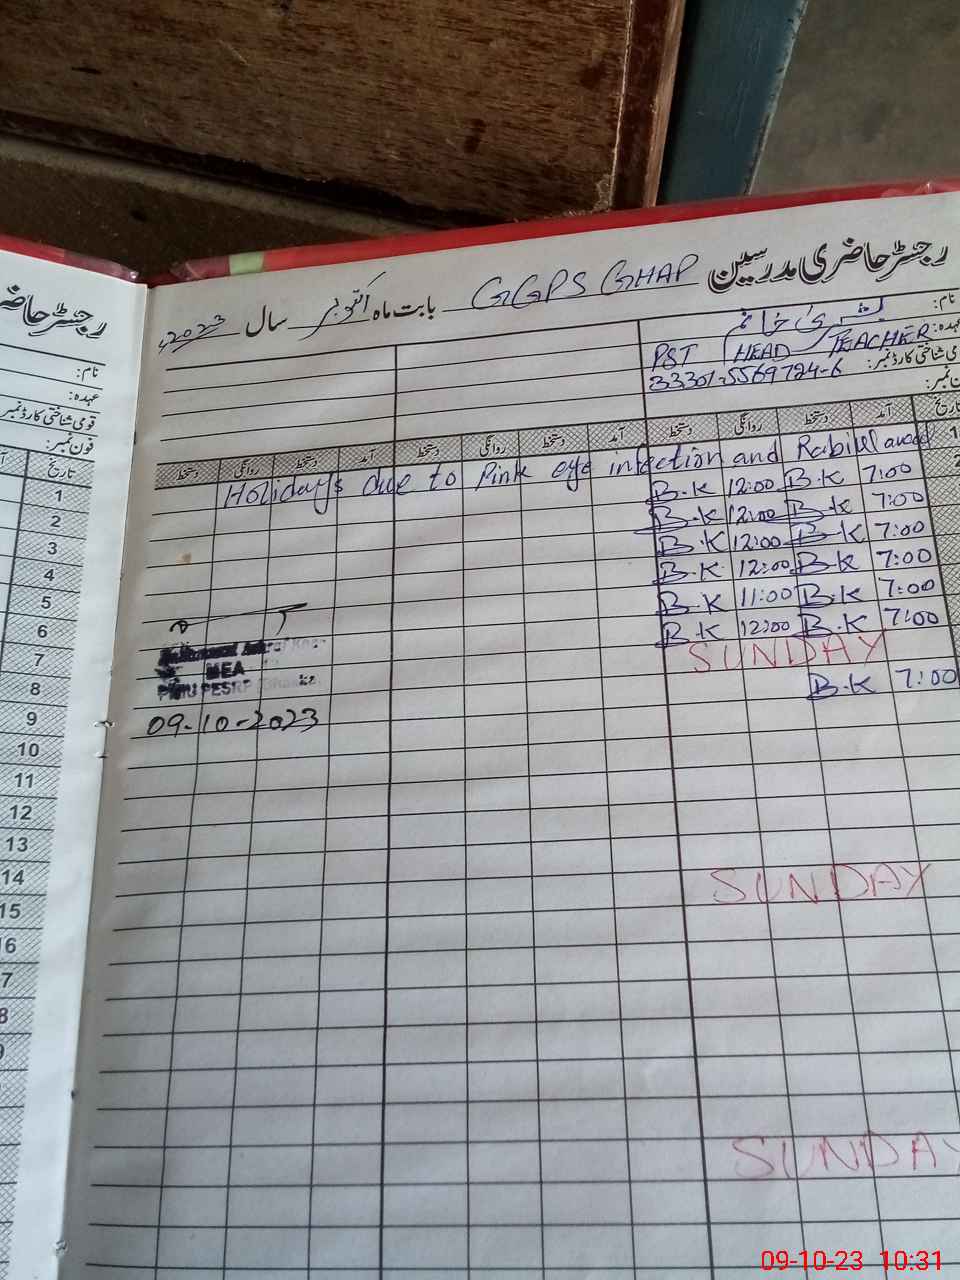 رجسٹر حاضری مدرسین GGPS GHAP بابت ماہ اکتوبر سال 2023ء
نام: بشریٰ خانم
عہدہ: PST HEAD TEACHER
قومی شناختی کارڈ نمبر: 33301-5569724-6
فون نمبر:
تاریخ آمد دستخط روانگی دستخط آمد دستخط روانگی دستخط آمد دستخط روانگی دستخط
1 Holidays due to Pink eye infection and Rabiul awal
2 7:00 B.K 12:00 B.K
7:00 B.K 12:00 B.K
7:00 B.K 12:00 B.K
7:00 B.K 12:00 B.K
7:00 B.K 11:00 B.K
7:00 B.K 12:00 B.K
SUNDAY
7:00 B.K
MEA
09-10-2023
SUNDAY
SUNDAY
رجسٹر حاضری
نام:
عہدہ:
قومی شناختی کارڈ نمبر
فون نمبر:
تاریخ
1
2
3
4
5
6
7
8
9
10
11
12
13
14
15
16
09-10-23 10:31